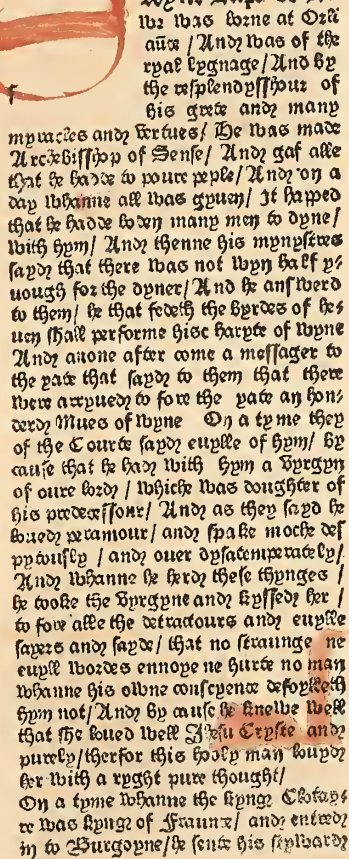 we was borne at Orli
aūce / And was of the
ryal lygnage / And by
the resplendysshour of
his grete and many
myracles and vertues / He was made
Archebisshop of Sense / And gaf alle
that he hadde to poure peple / And on a
day whanne all was gyuen / It happed
that he hadde boden many men to dyne /
with hym / And thenne his mynystres
sayd that there was not wyn half y⸗
nough for the dyner / And he answerd
to them / he that fedeth the byrdes of he⸗
uen shall performe hise charyte of wyne
And anone after come a messager to
the yate that sayd to them that there
were arryued to fore the yate an hon⸗
derd Mues of wyne On a tyme they
of the Courte sayd euylle of hym / by
cause that he had with hym a vyrgyn
of oure lord / whiche was doughter of
his predecessour / And as they sayd he
loued peramour / and spake moche des
pytously / and ouer dysatemperately /
And whanne he herd these thynges /
he tooke the vyrgyne and kyssed her /
to fore alle the detractours and euylle
sayers and sayde / that no straunge ne
euyll wordes ennoye ne hurte no man
whanne his owne conscyence defowleth
hym not / And by cause he knewe well
that she loued well Ihesu Cryste and
purely / therfor this hooly man louyd
her with a ryght pure thought /
On a tyme whanne the kyng Clotay⸗
re was kyng of Fraunce / and entred
in to Burgoyne / he sente his stywards